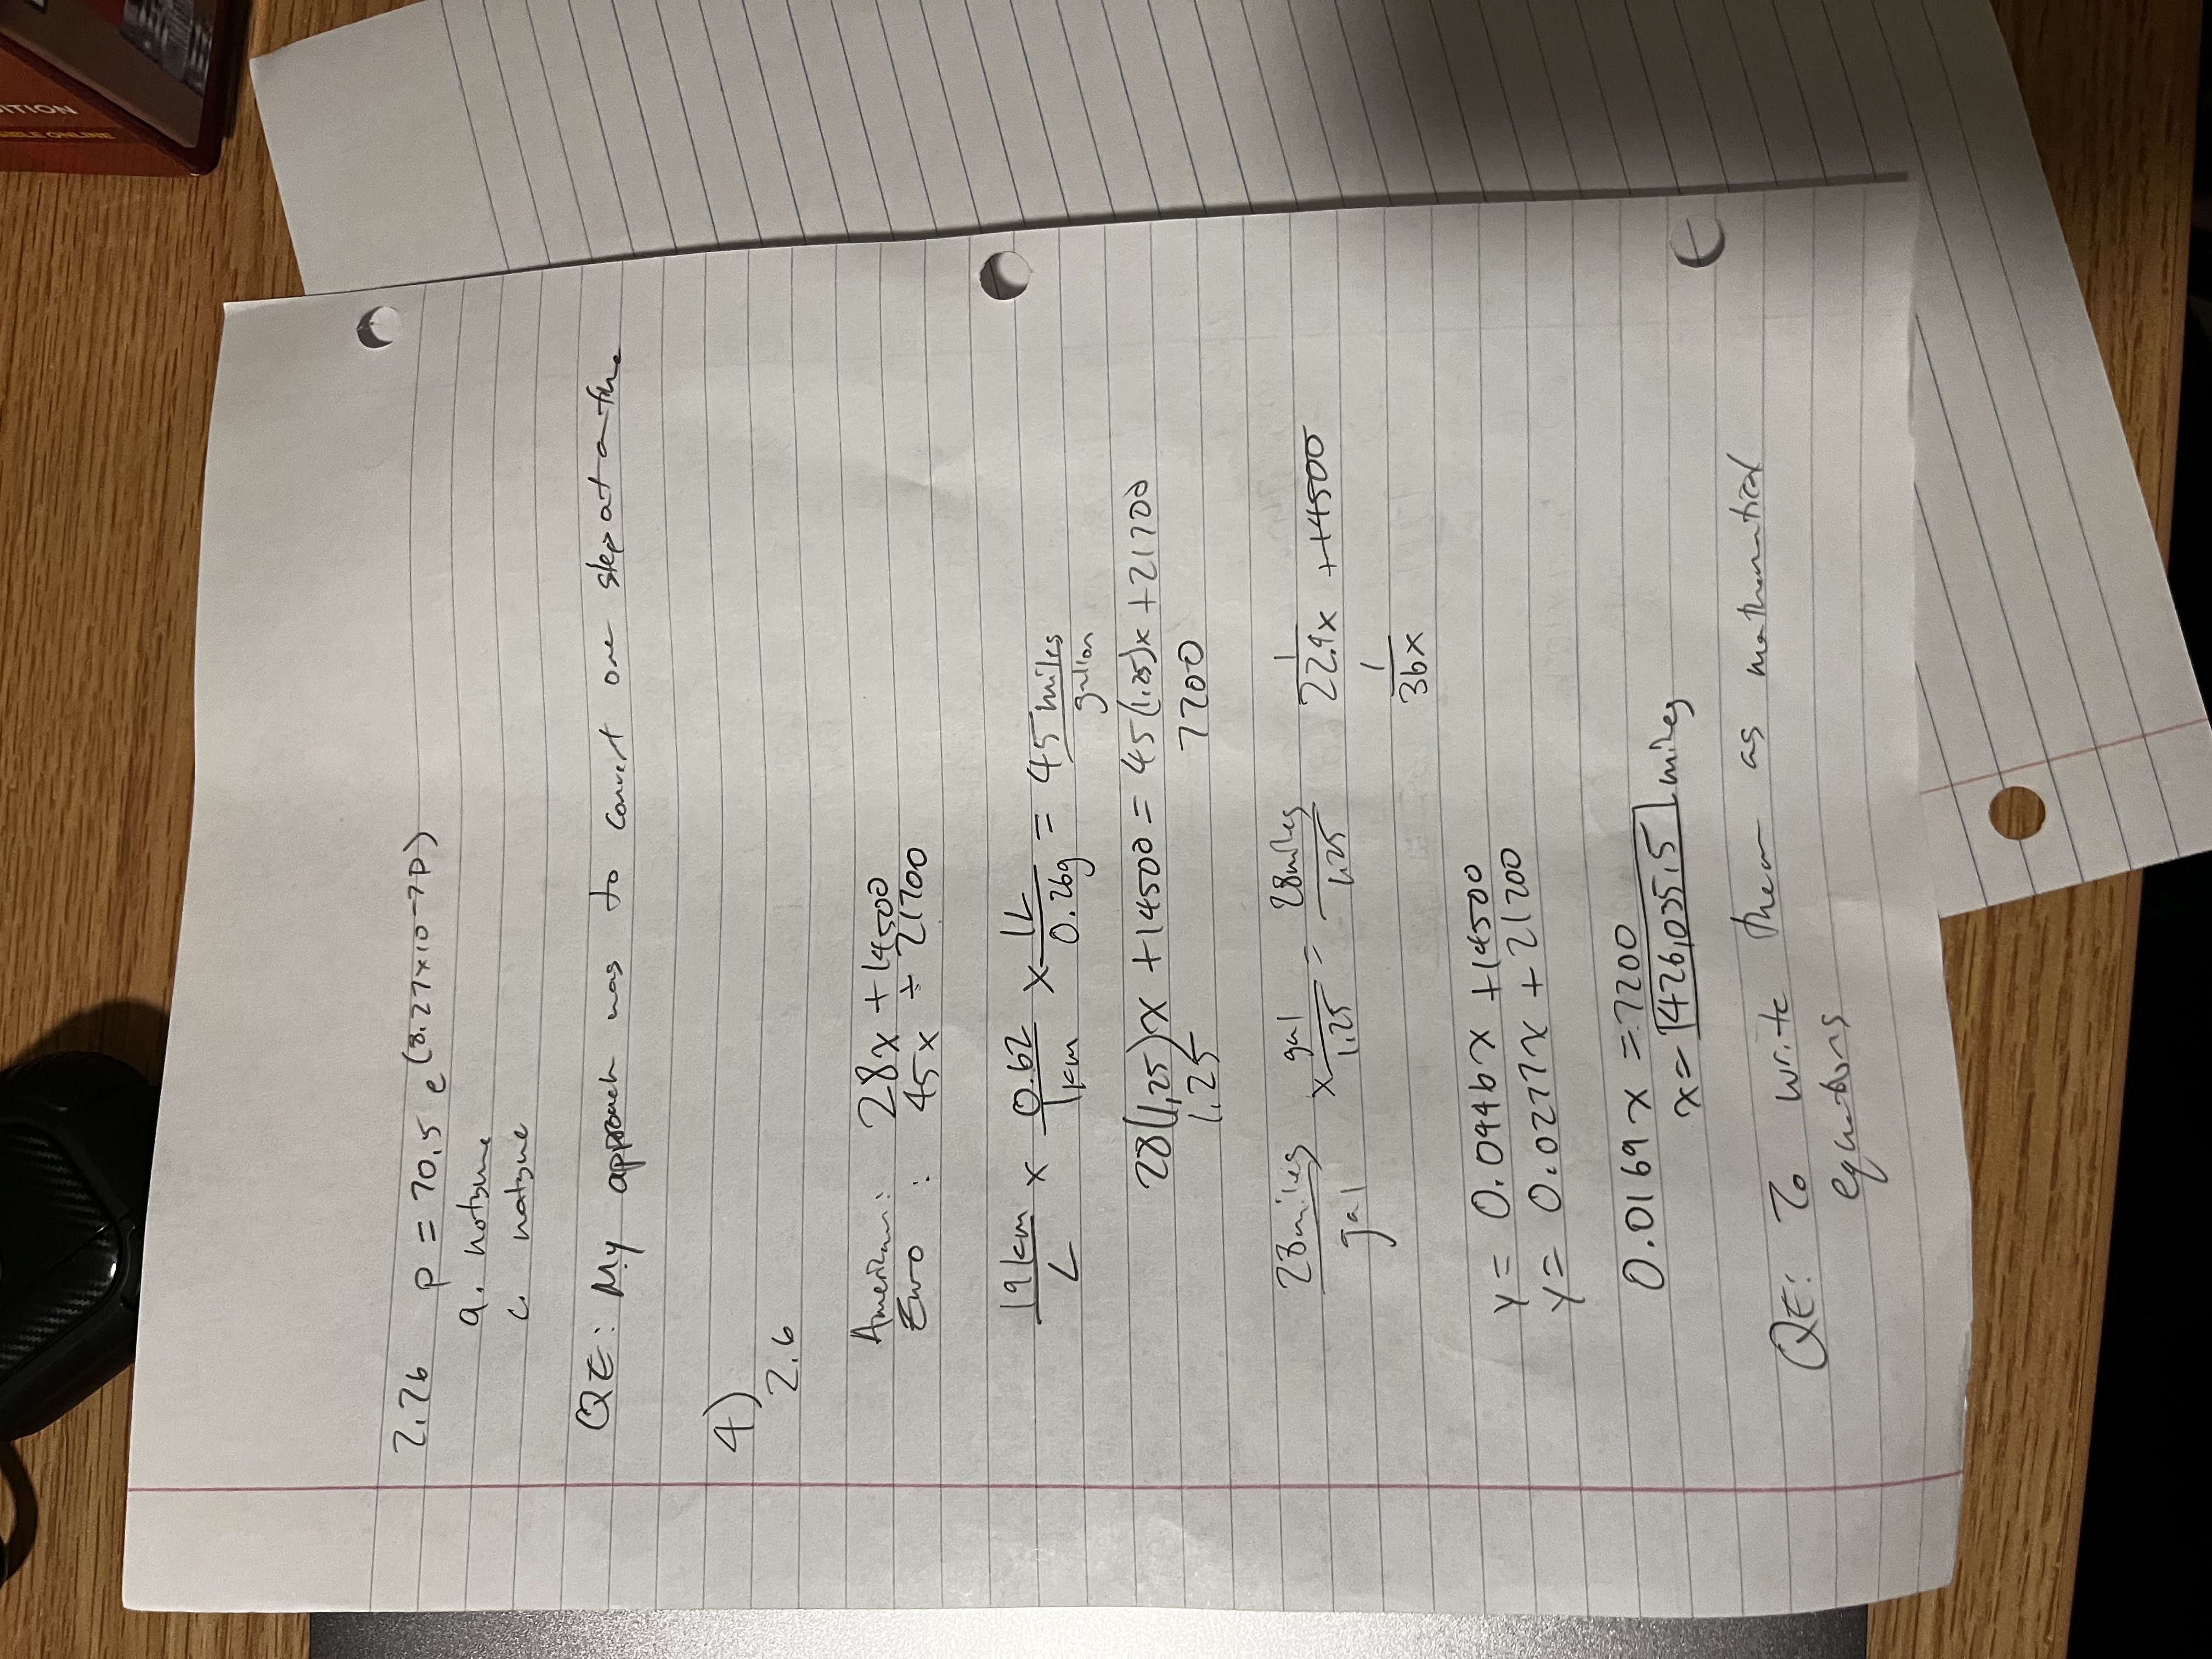 2.26 ρ = 70.5 e^(8.27x10^-7 P)
a. not sure
c. not sure
QE: My approach was to convert one step at a time
4)
2.6
American: 28x + 14500
Euro : 45x + 21700
19 km/L x 0.62/1km x 1L/0.26g = 45 miles/gallon
28(1.25)x + 14500 = 45(1.25)x + 21700
1.25 7200
28 miles/gal x gal/1.25 = 28 miles/1.25 1/22.4x + 14500
1/36x
y = 0.0446x + 14500
y = 0.0277x + 21700
0.0169x = 7200
x = 426,035.5 miles
QE: To write them as mathematical
equations
TION